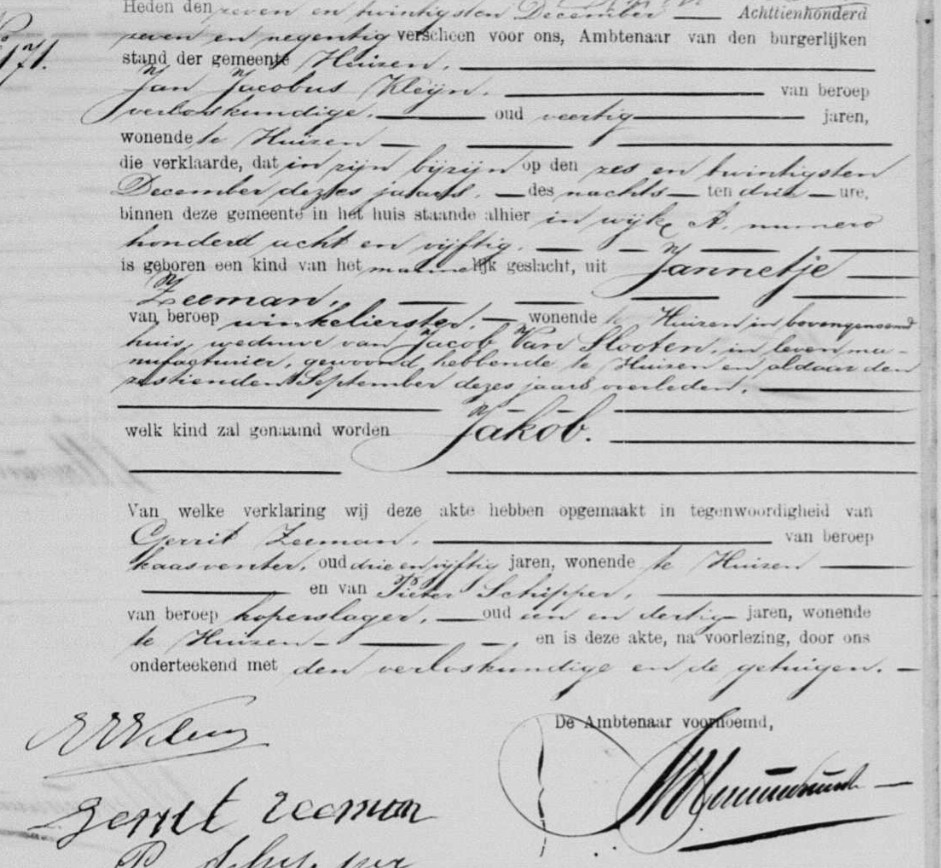 Heden den zeven en twintigsten December Achttienhonderd
171.
zeven en negentig verscheen voor ons, Ambtenaar van den burgerlijken
stand der gemeente Huizen,
Jan Jacobus Kleijn, van beroep
verloskundige, oud veertig jaren,
wonende te Huizen
die verklaarde, dat in zijn bijzijn op den zes en twintigsten
December dezes jaars, des nachts ten drie ure,
binnen deze gemeente in het huis staande alhier in wijk A. numero
honderd acht en vijftig,
is geboren een kind van het mannelijk geslacht, uit Jannetje
Zeeman,
van beroep winkelierster, wonende te Huizen in bovengenoemd
huis, weduwe van Jacob Van Slooten, in leven ma-
nufacturier, gewoond hebbende te Huizen en aldaar den
zestienden September dezes jaars overleden,
welk kind zal genaamd worden Jakob.
Van welke verklaring wij deze akte hebben opgemaakt in tegenwoordigheid van
Gerrit Zeeman, van beroep
kaasventer, oud drie en vijftig jaren, wonende te Huizen
en van Pieter Schipper,
van beroep koperslager, oud een en dertig jaren, wonende
te Huizen en is deze akte, na voorlezing, door ons
onderteekend met den verloskundige en de getuigen.
De Ambtenaar voornoemd,
Gerrit Zeeman
P. Schipper